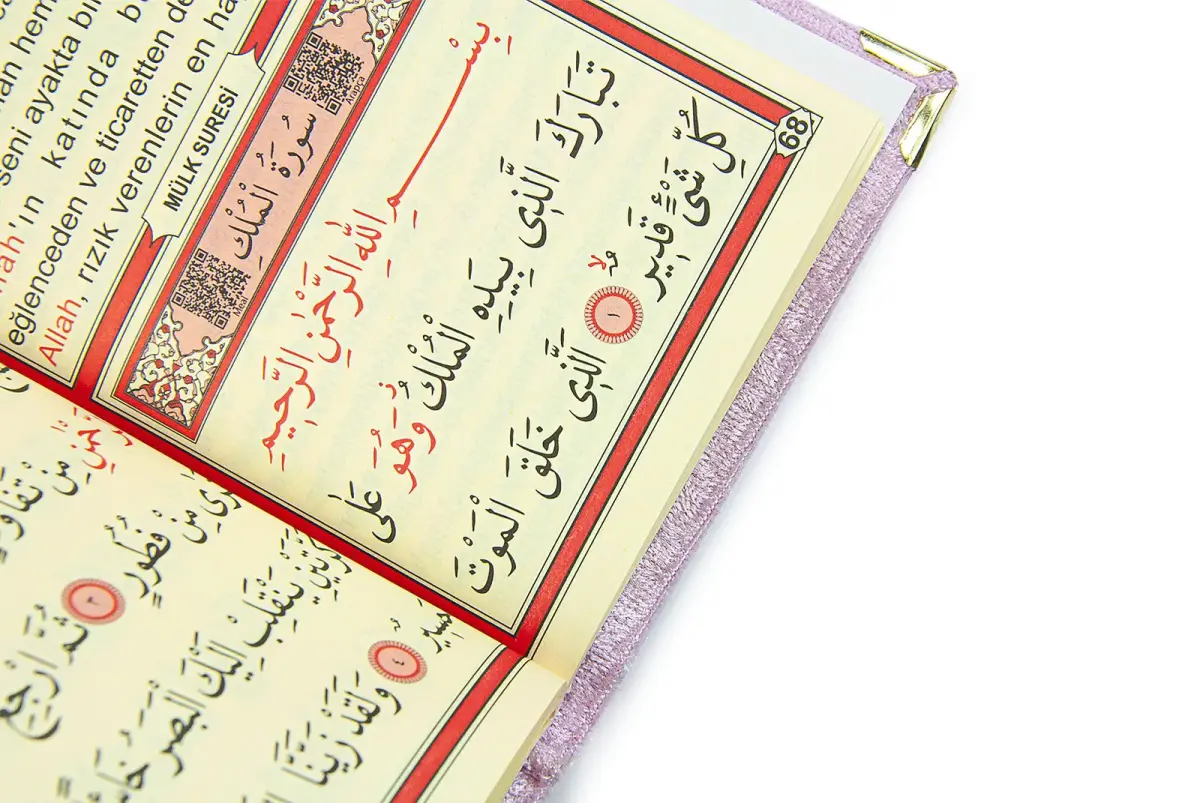 man hem
seni ayakta bı
Allah'ın katında b
eğlenceden ve ticaretten de
Allah, rızık verenlerin en ha
MÜLK SURESİ
سُورَةُ الْمُلْكِ
Arapça
Meal
بِسْــــــمِ اللّٰهِ الرَّحْمٰنِ الرَّحِيمِ
تَبَارَكَ الَّذِى بِيَدِهِ الْمُلْكُ وَهُوَ عَلٰى
كُلِّ شَىْءٍ قَدِيرٌ ۙ ﴿١﴾ اَلَّذِى خَلَقَ الْمَوْتَ
68
مِنْ تَفَاوُ
مِنْ فُطُورٍ ﴿٣﴾ ثُمَّ ارْجِعِ
يَنْقَلِبْ اِلَيْكَ الْبَصَرُ خَاسِ
﴿٤﴾ وَلَقَدْ زَيَّنَّا